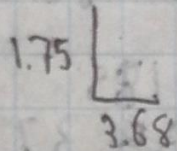 1.75
3.68